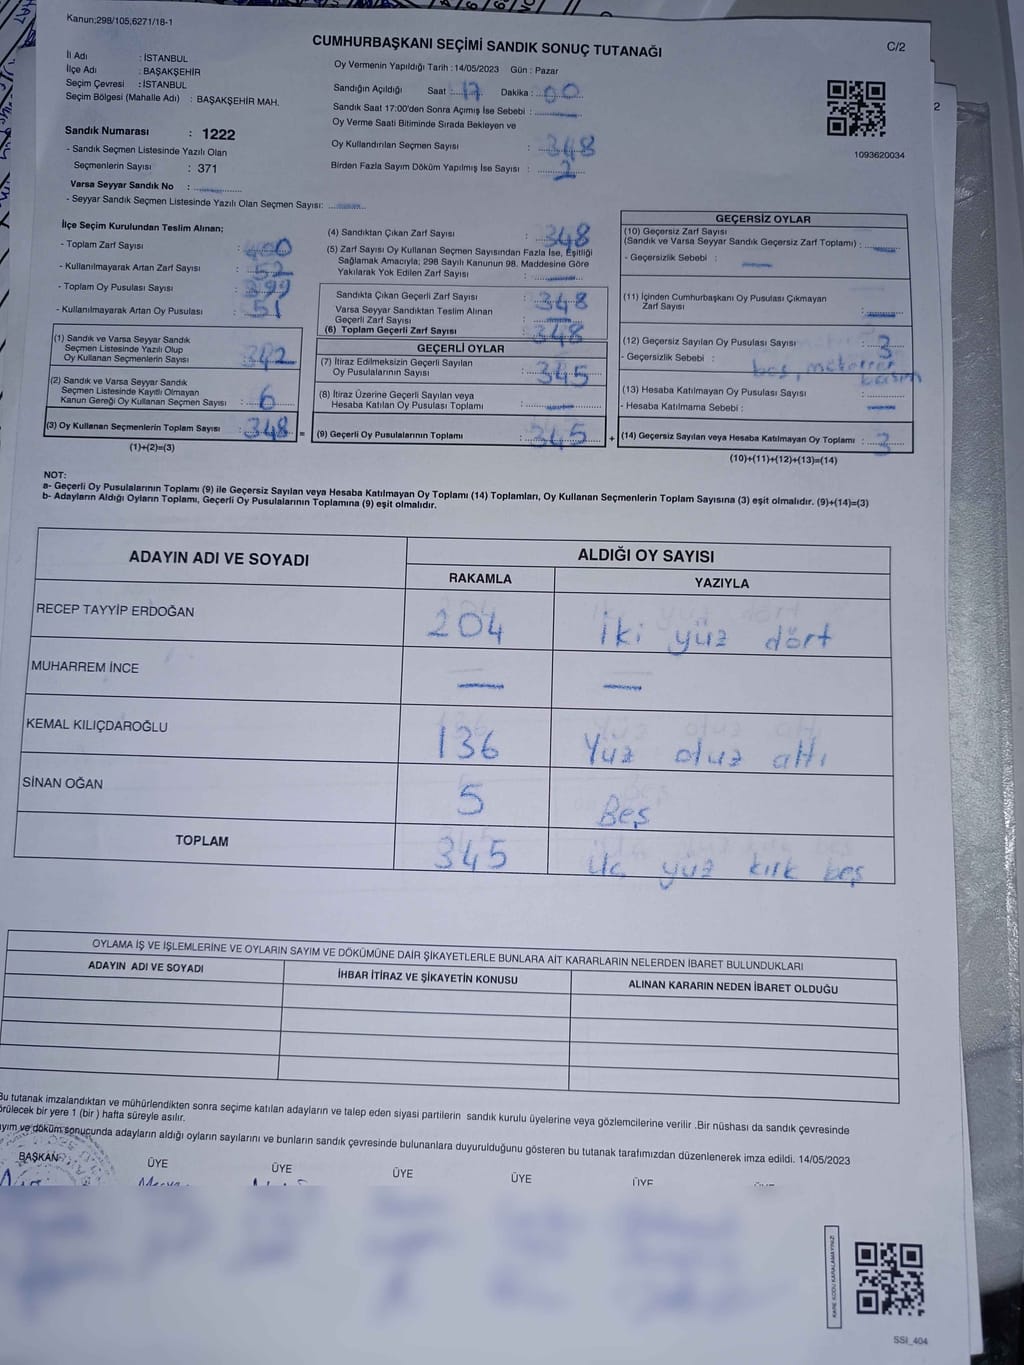 Kanun;298/105,6271/18-1
C/2
CUMHURBAŞKANI SEÇİMİ SANDIK SONUÇ TUTANAĞI
İl Adı : İSTANBUL
İlçe Adı : BAŞAKŞEHİR
Seçim Çevresi : İSTANBUL
Seçim Bölgesi (Mahalle Adı) : BAŞAKŞEHİR MAH.
Sandık Numarası : 1222
- Sandık Seçmen Listesinde Yazılı Olan
Seçmenlerin Sayısı : 371
Varsa Seyyar Sandık No :
- Seyyar Sandık Seçmen Listesinde Yazılı Olan Seçmen Sayısı:
Oy Vermenin Yapıldığı Tarih : 14/05/2023 Gün : Pazar
Sandığın Açıldığı Saat : 17 Dakika : 00
Sandık Saat 17:00'den Sonra Açımış İse Sebebi :
Oy Verme Saati Bitiminde Sırada Bekleyen ve
Oy Kullandırılan Seçmen Sayısı : 348
Birden Fazla Sayım Döküm Yapılmış İse Sayısı : 2
1093620034
2
İlçe Seçim Kurulundan Teslim Alınan;
- Toplam Zarf Sayısı : 400
- Kullanılmayarak Artan Zarf Sayısı : 52
- Toplam Oy Pusulası Sayısı : 399
- Kullanılmayarak Artan Oy Pusulası : 51
(1) Sandık ve Varsa Seyyar Sandık
Seçmen Listesinde Yazılı Olup
Oy Kullanan Seçmenlerin Sayısı : 342
(2) Sandık ve Varsa Seyyar Sandık
Seçmen Listesinde Kayıtlı Olmayan
Kanun Gereği Oy Kullanan Seçmen Sayısı : 6
(3) Oy Kullanan Seçmenlerin Toplam Sayısı : 348 =
(1)+(2)=(3)
(4) Sandıktan Çıkan Zarf Sayısı : 348
(5) Zarf Sayısı Oy Kullanan Seçmen Sayısından Fazla İse, Eşitliği
Sağlamak Amacıyla; 298 Sayılı Kanunun 98. Maddesine Göre
Yakılarak Yok Edilen Zarf Sayısı :
Sandıkta Çıkan Geçerli Zarf Sayısı : 348
Varsa Seyyar Sandıktan Teslim Alınan
Geçerli Zarf Sayısı :
(6) Toplam Geçerli Zarf Sayısı : 348
GEÇERLİ OYLAR
(7) İtiraz Edilmeksizin Geçerli Sayılan
Oy Pusulalarının Sayısı : 345
(8) İtiraz Üzerine Geçerli Sayılan veya
Hesaba Katılan Oy Pusulası Toplamı :
(9) Geçerli Oy Pusulalarının Toplamı : 345 +
GEÇERSİZ OYLAR
(10) Geçersiz Zarf Sayısı
(Sandık ve Varsa Seyyar Sandık Geçersiz Zarf Toplamı) :
- Geçersizlik Sebebi :
(11) İçinden Cumhurbaşkanı Oy Pusulası Çıkmayan
Zarf Sayısı :
(12) Geçersiz Sayılan Oy Pusulası Sayısı : 3
- Geçersizlik Sebebi : boş,
(13) Hesaba Katılmayan Oy Pusulası Sayısı :
- Hesaba Katılmama Sebebi :
(14) Geçersiz Sayılan veya Hesaba Katılmayan Oy Toplamı : 3
(10)+(11)+(12)+(13)=(14)
NOT:
a- Geçerli Oy Pusulalarının Toplamı (9) ile Geçersiz Sayılan veya Hesaba Katılmayan Oy Toplamı (14) Toplamları, Oy Kullanan Seçmenlerin Toplam Sayısına (3) eşit olmalıdır. (9)+(14)=(3)
b- Adayların Aldığı Oyların Toplamı, Geçerli Oy Pusulalarının Toplamına (9) eşit olmalıdır.
ADAYIN ADI VE SOYADI ALDIĞI OY SAYISI
RAKAMLA YAZIYLA
RECEP TAYYİP ERDOĞAN 204 İki yüz dört
MUHARREM İNCE — —
KEMAL KILIÇDAROĞLU 136 Yüz otuz altı
SİNAN OĞAN 5 Beş
TOPLAM 345 Üç yüz kırk beş
OYLAMA İŞ VE İŞLEMLERİNE VE OYLARIN SAYIM VE DÖKÜMÜNE DAİR ŞİKAYETLERLE BUNLARA AİT KARARLARIN NELERDEN İBARET BULUNDUKLARI
ADAYIN ADI VE SOYADI İHBAR İTİRAZ VE ŞİKAYETİN KONUSU ALINAN KARARIN NEDEN İBARET OLDUĞU
Bu tutanak imzalandıktan ve mühürlendikten sonra seçime katılan adayların ve talep eden siyasi partilerin sandık kurulu üyelerine veya gözlemcilerine verilir .Bir nüshası da sandık çevresinde
örülecek bir yere 1 (bir ) hafta süreyle asılır.
ayım ve döküm sonucunda adayların aldığı oyların sayılarını ve bunların sandık çevresinde bulunanlara duyurulduğunu gösteren bu tutanak tarafımızdan düzenlenerek imza edildi. 14/05/2023
BAŞKAN ÜYE ÜYE ÜYE ÜYE ÜYE
KARE KODU KARALAMAYINIZ
SSI_404